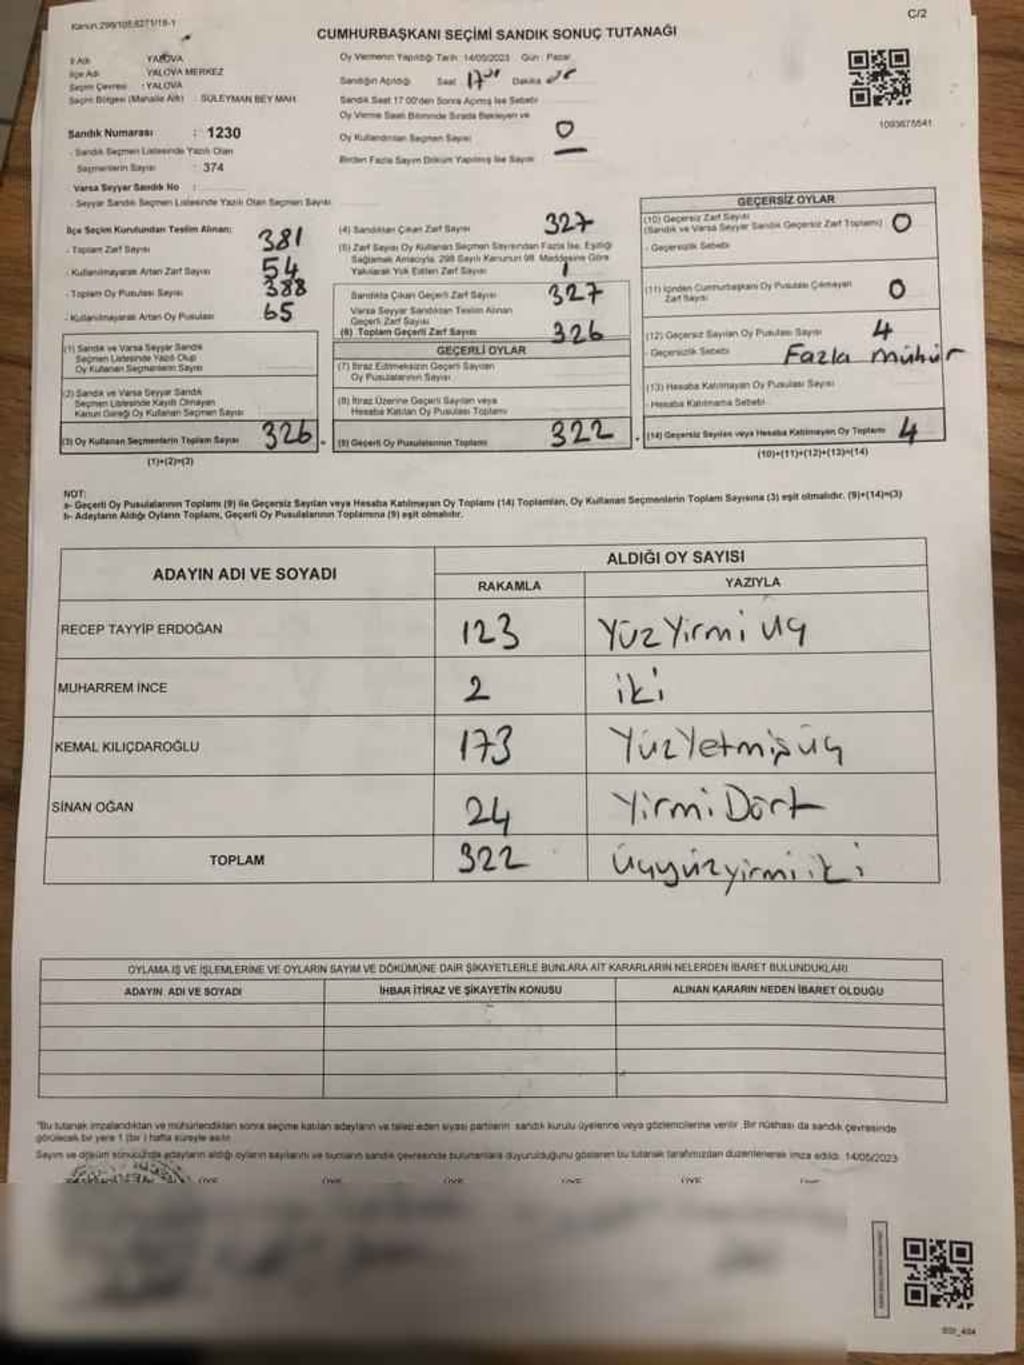 Kanun:298/105,8271/18-1
C/2
CUMHURBAŞKANI SEÇİMİ SANDIK SONUÇ TUTANAĞI
İl Adı : YALOVA
İlçe Adı : YALOVA MERKEZ
Seçim Çevresi : YALOVA
Seçim Bölgesi (Mahalle Adı) : SÜLEYMAN BEY MAH.
Sandık Numarası : 1230
- Sandık Seçmen Listesinde Yazılı Olan
Seçmenlerin Sayısı : 374
Varsa Seyyar Sandık No :
- Seyyar Sandık Seçmen Listesinde Yazılı Olan Seçmen Sayısı
Oy Vermenin Yapıldığı Tarih: 14/05/2023 Gün: Pazar
Sandığın Açıldığı Saat Dakika
Sandık Saat 17.00'den Sonra Açılmış İse Sebebi
Oy Verme Saati Bitiminde Sırada Bekleyen ve
Oy Kullandırılan Seçmen Sayısı 0
Birden Fazla Sayım Döküm Yapılmış İse Sayısı
1093675541
İlçe Seçim Kurulundan Teslim Alınan:
- Toplam Zarf Sayısı 381
- Kullanılmayarak Artan Zarf Sayısı 54
- Toplam Oy Pusulası Sayısı 388
- Kullanılmayarak Artan Oy Pusulası 65
(1) Sandık ve Varsa Seyyar Sandık
Seçmen Listesinde Yazılı Olup
Oy Kullanan Seçmenlerin Sayısı
(2) Sandık ve Varsa Seyyar Sandık
Seçmen Listesinde Kayıtlı Olmayan
Kanun Gereği Oy Kullanan Seçmen Sayısı
(3) Oy Kullanan Seçmenlerin Toplam Sayısı 326
(1)+(2)=(3)
(4) Sandıktan Çıkan Zarf Sayısı 327
(5) Zarf Sayısı Oy Kullanan Seçmen Sayısından Fazla İse, Eşitliği
Sağlamak Amacıyla, 298 Sayılı Kanunun 98. Maddesine Göre
Yakılarak Yok Edilen Zarf Sayısı 1
Sandıkta Çıkan Geçerli Zarf Sayısı 327
Varsa Seyyar Sandıktan Teslim Alınan
Geçerli Zarf Sayısı
(6) Toplam Geçerli Zarf Sayısı 326
GEÇERLİ OYLAR
(7) İtiraz Edilmeksizin Geçerli Sayılan
Oy Pusulalarının Sayısı
(8) İtiraz Üzerine Geçerli Sayılan veya
Hesaba Katılan Oy Pusulası Toplamı
(9) Geçerli Oy Pusulalarının Toplamı 322
GEÇERSİZ OYLAR
(10) Geçersiz Zarf Sayısı
(Sandık ve Varsa Seyyar Sandık Geçersiz Zarf Toplamı) 0
- Geçersizlik Sebebi
(11) İçinden Cumhurbaşkanı Oy Pusulası Çıkmayan
Zarf Sayısı 0
(12) Geçersiz Sayılan Oy Pusulası Sayısı 4
- Geçersizlik Sebebi Fazla mühür
(13) Hesaba Katılmayan Oy Pusulası Sayısı
- Hesaba Katılmama Sebebi
(14) Geçersiz Sayılan veya Hesaba Katılmayan Oy Toplamı 4
(10)+(11)+(12)+(13)=(14)
NOT:
a- Geçerli Oy Pusulalarının Toplamı (9) ile Geçersiz Sayılan veya Hesaba Katılmayan Oy Toplamı (14) Toplamları, Oy Kullanan Seçmenlerin Toplam Sayısına (3) eşit olmalıdır. (9)+(14)=(3)
b- Adayların Aldığı Oyların Toplamı, Geçerli Oy Pusulalarının Toplamına (9) eşit olmalıdır.
ADAYIN ADI VE SOYADI ALDIĞI OY SAYISI
RAKAMLA YAZIYLA
RECEP TAYYİP ERDOĞAN 123 Yüz Yirmi üç
MUHARREM İNCE 2 iki
KEMAL KILIÇDAROĞLU 173 Yüz Yetmiş üç
SİNAN OĞAN 24 Yirmi Dört
TOPLAM 322 Üçyüzyirmi iki
OYLAMA İŞ VE İŞLEMLERİNE VE OYLARIN SAYIM VE DÖKÜMÜNE DAİR ŞİKAYETLERLE BUNLARA AİT KARARLARIN NELERDEN İBARET BULUNDUKLARI
ADAYIN ADI VE SOYADI İHBAR İTİRAZ VE ŞİKAYETİN KONUSU ALINAN KARARIN NEDEN İBARET OLDUĞU
"Bu tutanak imzalandıktan ve mühürlendikten sonra seçime katılan adayların ve talep eden siyasi partilerin sandık kurulu üyelerine veya gözlemcilerine verilir. Bir nüshası da sandık çevresinde
görülecek bir yere 1 (bir) hafta süreyle asılır.
Sayım ve döküm sonucunda adayların aldığı oyların sayılarını ve bunların sandık çevresinde bulunanlara duyurulduğunu gösteren bu tutanak tarafımızdan düzenlenerek imza edildi. 14/05/2023